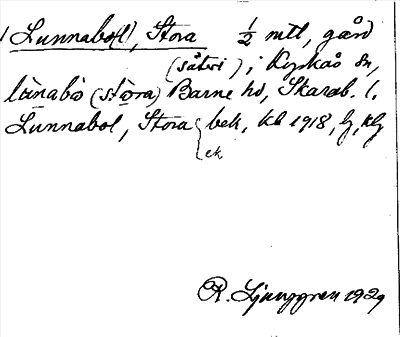 Lunnabo(l), Stora ½ mtl, gård
(såtri), i Kyrkås sn,
lùnabò (stòra) Barne hd, Skarab. l.
Lunnabol, Stora { bek, kb 1918, lj, klj
ek
R. Ljunggren 1929